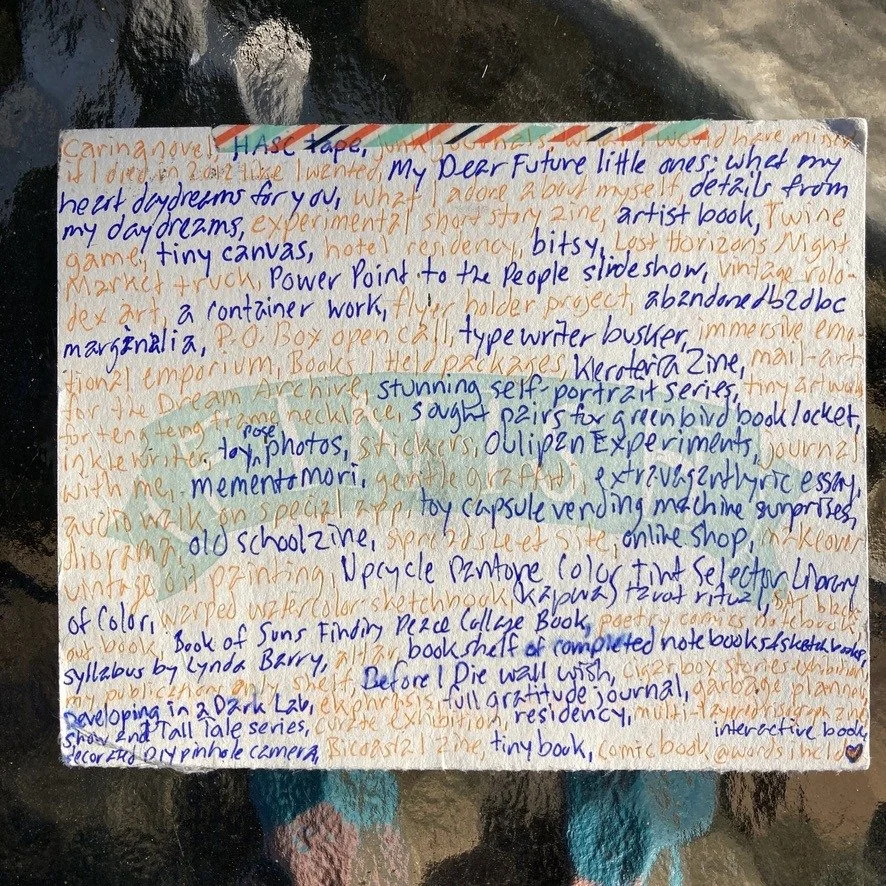 Caring novel, HASC tape, junk journals, what would have
if I died in 2012 like I wanted, My Dear Future little ones; what my
heart daydreams for you, what I adore about myself, details from
my daydreams, experimental short story zine, artist book, Twine
game, tiny canvas, hotel residency, bitsy, Lost Horizons Night
Market truck, Power Point to the People slideshow, vintage rolo-
dex art, a container work, flyer holder project, abandonedb2dbc
marginalia, P.O. Box open call, typewriter busker, immersive emo-
tional emporium, Books Held packages, Kleroteria Zine, mail-art
for the Dream Archive, stunning self-portrait series, tiny artwork
for teng teng frame necklace, sought pairs for green bird book locket,
inklewriter, toy nose photos, stickers, Oulipan Experiments, journal
with me, memento mori, gentle graffiti, extravagant lyric essay,
audio walk on special app, toy capsule vending machine surprises,
diorama, old school zine, spreadsheet site, online shop, makeover
vintage oil painting, Upcycle Pantone Color Tint Selector Library
of Color, warped watercolor sketchbook, Kapwa tarot ritual, black
out book, Book of Suns Finding Peace Collage Book, poetry comics notebook,
syllabus by Lynda Barry, altar, bookshelf of completed notebooks & sketchbooks,
my publication only shelf, Before I Die wall wish, cigarbox stories exhibition,
Developing in a Dark Lab, ekphrasis, full gratitude journal, garbage planner,
Show and Tall Tale series, curate exhibition, residency, multi-layered risograph zine, interactive book,
decorated DIY pinhole camera, Bicoastal zine, tiny book, comic book @wordsiheld